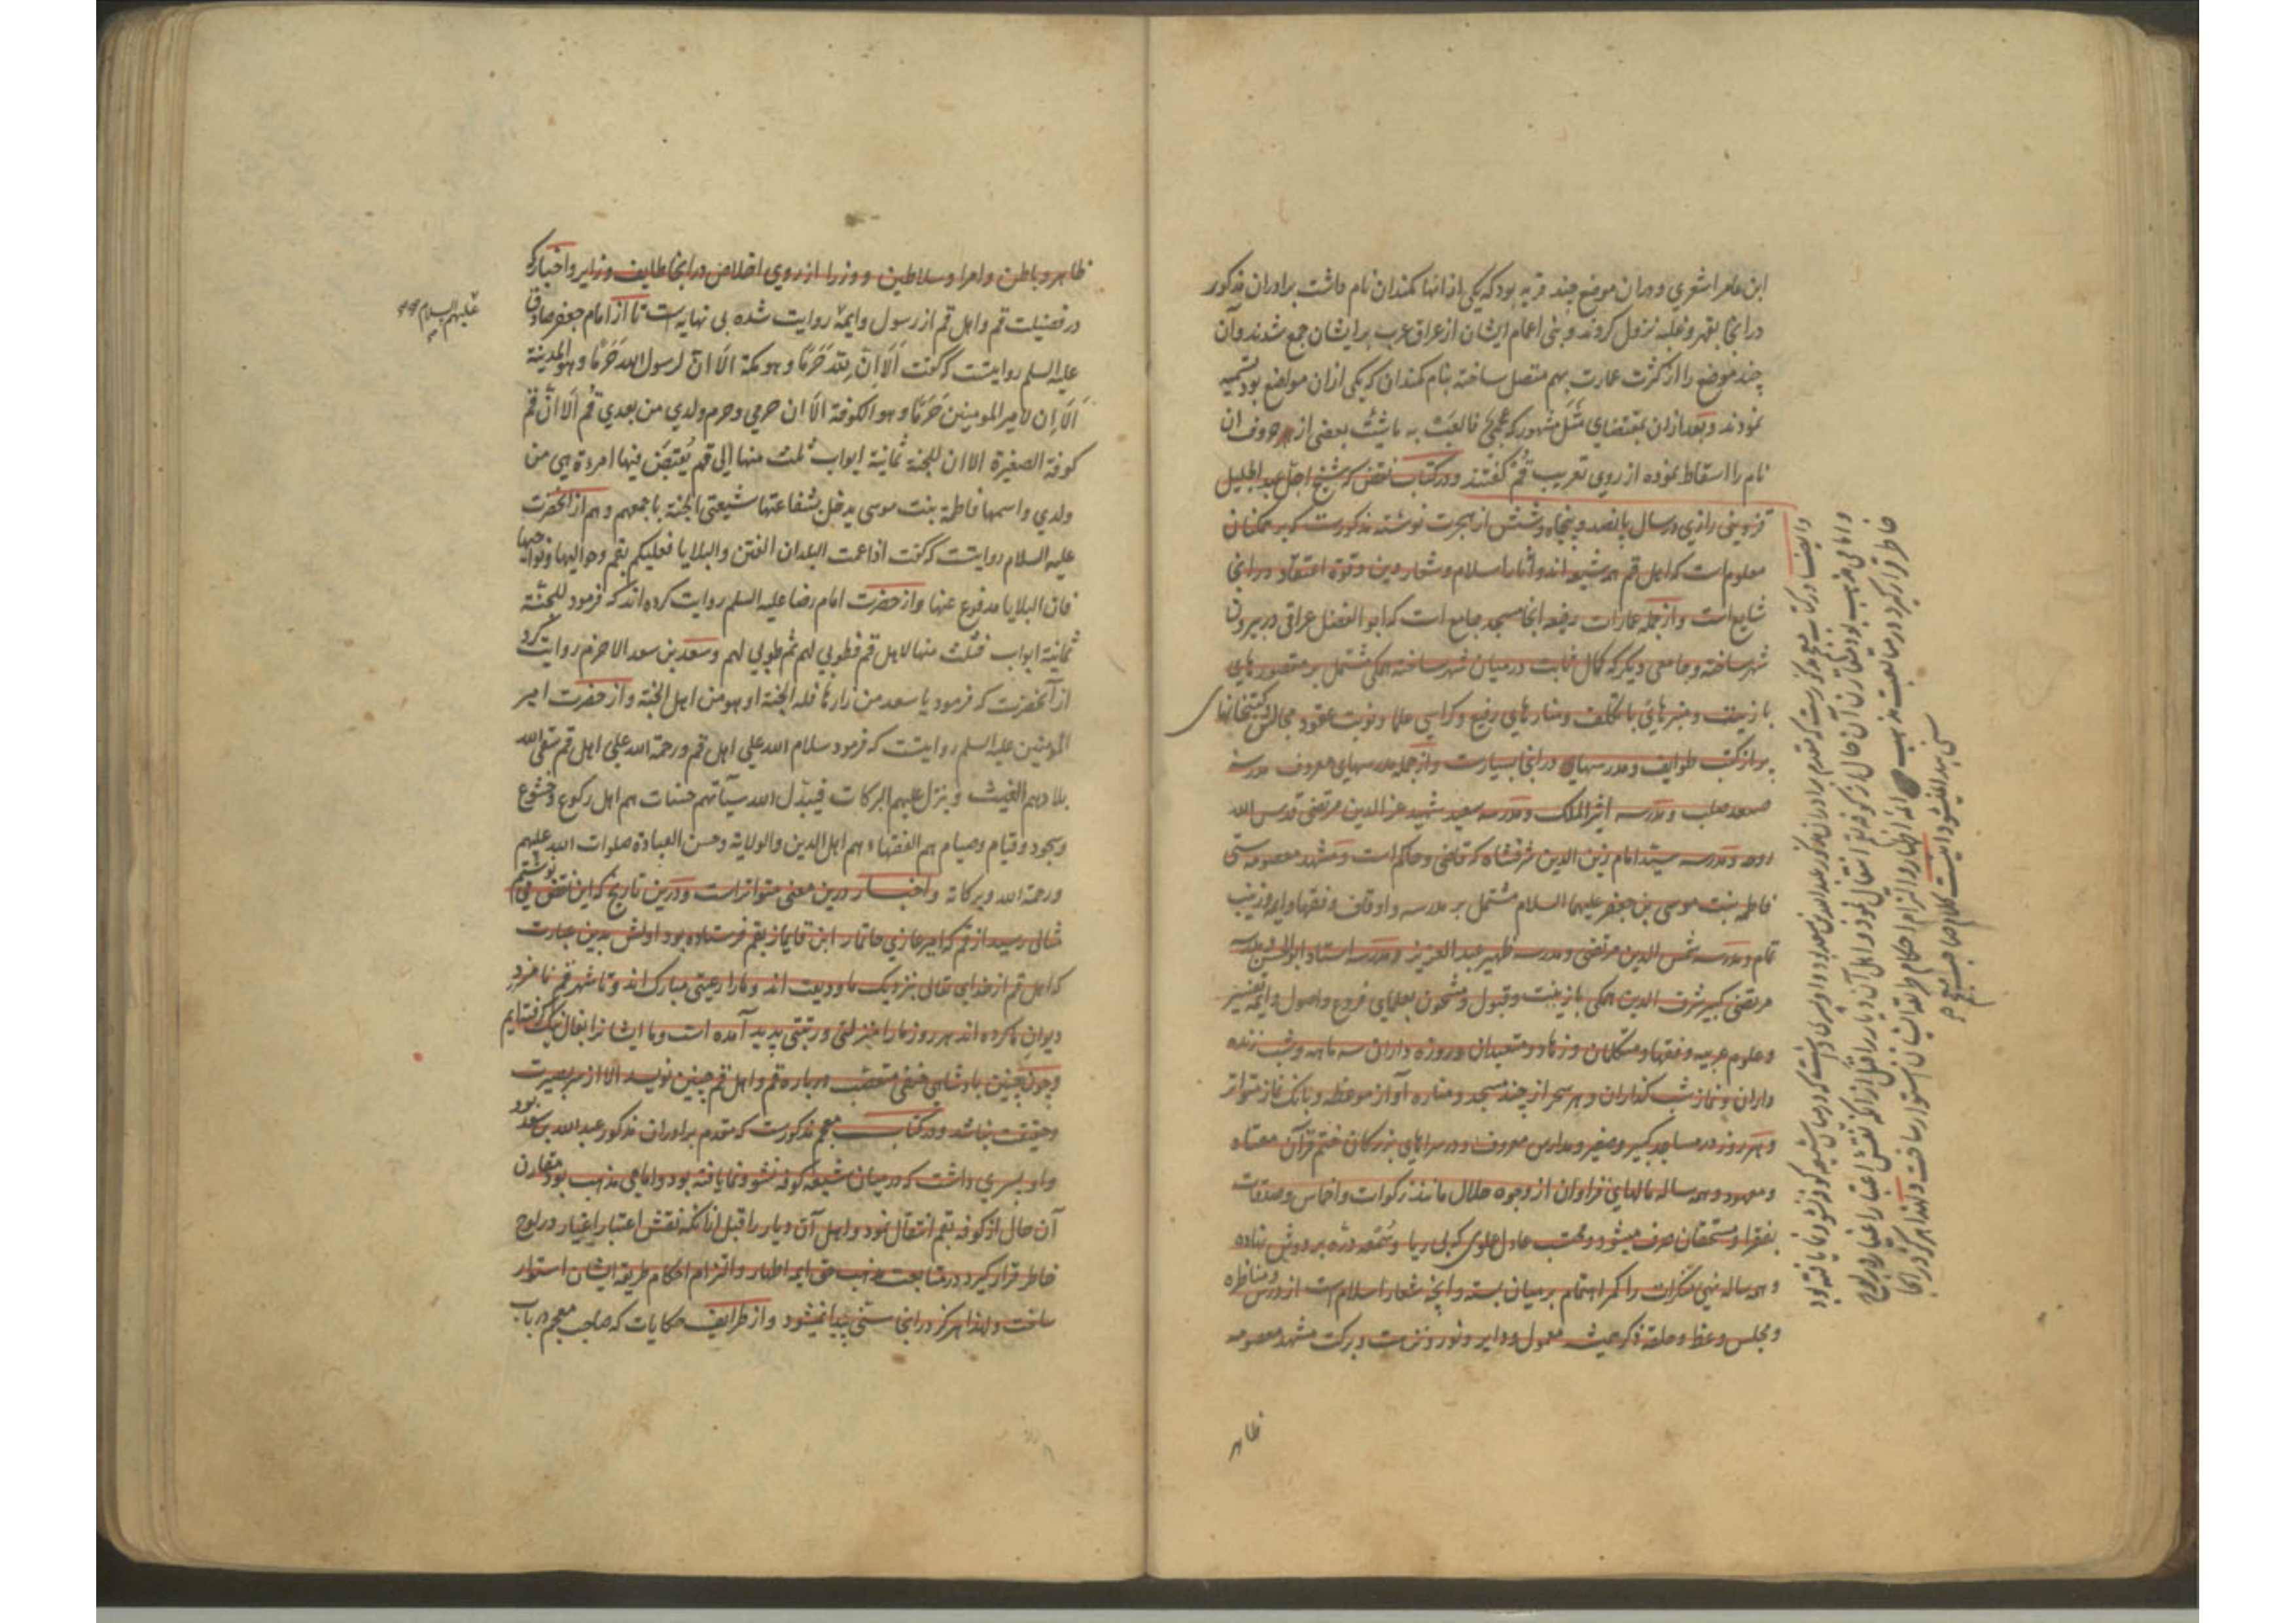 ابن عامر اشعری و در ان موضع چند قریه بود که یکی از انها کمندان نام داشت برادران مذکور
در انجا بقهر و غلبه نزول کردند و بنی اعمام ایشان از عراق عرب برایشان جمع شدند و آن
چند موضع را از کثرت عمارت بهم متصل ساخته بنام کمندان که یکی ازان مواضع بود تسمیه
نمودند و بعد ازان بمقتضای مثل مشهور که عجمی فالعب به ما شئت بعضی از حروف ان
نام را اسقاط نموده از روی تعریب قم گفتند و در کتاب نقض که شیخ اجل عبد الجلیل
قزوینی رازی در سال پانصد و پنجاه و شش از هجرت نوشته مذکورست که بر همکنان
معلوم است که اهل قم همه شیعه اند و آثار اسلام و شعار دین و قوة اعتقاد در انجا
شایع است و از جمله عمارات رفیعه انجا مسجد جامع است که ابو الفضل عراقی در بیرون
شهر ساخته و جامعی دیگر که کمال ثابت در میان شهر ساخته همگی مشتمل بر مقصورهای
با زینت و منبرهای با تکلف و منارهای رفیع و کراسی علما و نوبت عقود مجالس و کتبخانهای
پر از کتب طوایف و مدرسهای در انجا بسیارست و از جمله مدرسهای معروف مدرسه
سعد صلب و مدرسه اثیر الملک و مدرسه سعید شهید عز الدین مرتضی قدس الله
روحه و مدرسه سید امام زین الدین شرفشاه که قاضی و حاکم است و مشهد معصومه ستی
فاطمه بنت موسی بن جعفر علیهما السلام مشتمل بر مدرسه و اوقاف و فقها و ایمه و زینب
تمام و مدرسه شمس الدین مرتضی و مدرسه ظهیر عبد العزیز و مدرسه استاد ابو الحسن و مدرسه
مرتضی کبیر شرف الدین همگی با زینت و قبول و مشحون بعلمای فروع و اصول و ایمه تفسیر
و علوم عربیه و فقها و متکلمان و زهاد و متعبدان و روزه داران سه ماهه و شب زنده
داران و نماز شب گذاران و هر سحر از چند مسجد و مناره آواز موعظه و بانگ نماز متواتر
و هر روز در مساجد کبیر و صغیر و مدارس معروف و در سراهای بزرگان ختم قرآن معتاد
و معهود و هر ساله مالهای فراوان از وجوه حلال مانند زکوات و اخماس و صدقات
بفقرا و مستحقان صرف میشود و محتسب عادل علوی کی بی ریا و سمعه دره بر دوش نهاده
و هر ساله نهی منکرات را کمر اهتمام بر میان بسته و آنچه شعار اسلام است از درس و مناظره
و مجلس وعظ و حلقه ذکر همیشه معمول و دایر و نور و زینت و برکت مشهد معصومه
ظاهر
و ایضا در کتاب معجم مذکورست که مقدم برادران مذکور عبد الله بن سعد بود و او پسری داشت که در میان شیعه کوفه نشو و نما یافته بود
و امامی مذهب بود مقارن آن حال از کوفه بقم انتقال نمود و اهل آن دیار را قبل از انکه نقش اعتبار اغیار در لوح
خاطر قرار گیرد در متابعت مذهب ائمه اطهار و التزام احکام طریقه ایشان استوار ساخت و لهذا هرگز در انجا
سنی پیدا نمیشود انتهت کلام صاحب معجم
ظاهر و باطن و امرا و سلاطین و وزرا از روی اخلاص در انجا طایف و زایر و اخبار که
در فضیلت قم و اهل قم از رسول و ایمه روایت شده بی نهایه است تا از امام جعفر صادق
علیهم السلام
علیه السلم روایتست که گفت الا ان لله حرما و هو مکة الا ان لرسول الله حرما و هو المدینة
الا ان لامیر المومنین حرما و هو الکوفة الا ان حرمی و حرم ولدی من بعدی قم الا ان قم
کوفة الصغیرة الا ان للجنة ثمانیة ابواب ثلث منها الی قم یقبض فیها امرءة هی من
ولدی و اسمها فاطمة بنت موسی یدخل بشفاعتها شیعتی الجنة باجمعهم و هم از آنحضرت
علیه السلام روایتست که گفت اذا عمت البلدان الفتن و البلایا فعلیکم بقم و حوالیها و نواحیها
فان البلایا مدفوع عنها و از حضرت امام رضا علیه السلم روایت کرده اند که فرمود للجنة
ثمانیة ابواب فثلث منها لاهل قم فطوبی لهم ثم طوبی لهم و سعد بن سعد الاحزم روایت کرد
از آنحضرت که فرمود یا سعد من زارها فله الجنة او هو من اهل الجنة و از حضرت امیر
المومنین علیه السلم روایتست که فرمود سلام الله علی اهل قم و رحمة الله علی اهل قم سقی الله
بلادهم الغیث و ینزل علیهم البرکات فیبدل الله سیآتهم حسنات هم اهل رکوع و خشوع
و سجود و قیام و صیام هم الفقهاء هم اهل الدین و الولایة و حسن العبادة صلوات الله علیهم
و رحمة الله و برکاته و اخبار درین معنی متواتراست و درین تاریخ که این نقض می نوشتم
مثالی رسید از قم که امیر غازی قایماز بقم فرستاده بود اولش بدین عبارت
که اهل قم از خدای تعالی بنزدیک ما ودیعت اند و ما را رعیتی مبارک اند و تا شهر قم نامزد
دیوان ما کرده اند هر روز ما را منزلتی و رتبتی پدید آمده است و ما ایشانرا بفال نیک گرفته ایم
و چون چنین پادشاهی حنفی متعصب درباره قم و اهل قم چنین نویسد الا از سر بصیرت
و حقیقت نباشد و در کتاب معجم مذکورست که مقدم برادران مذکور عبد الله بن سعد بود
و او پسری داشت که در میان شیعه کوفه نشو و نما یافته بود و امامی مذهب بود مقارن
آن حال از کوفه بقم انتقال نمود و اهل آن دیار را قبل ازانکه نقش اعتبار اغیار در لوح
خاطر قرار گیرد در متابعت مذهب حق ایمه اطهار و التزام احکام طریقه ایشان استوار
ساخت و لهذا هرگز در انجا سنی پیدا نمیشود و از ظرایف حکایات که صاحب معجم در باب